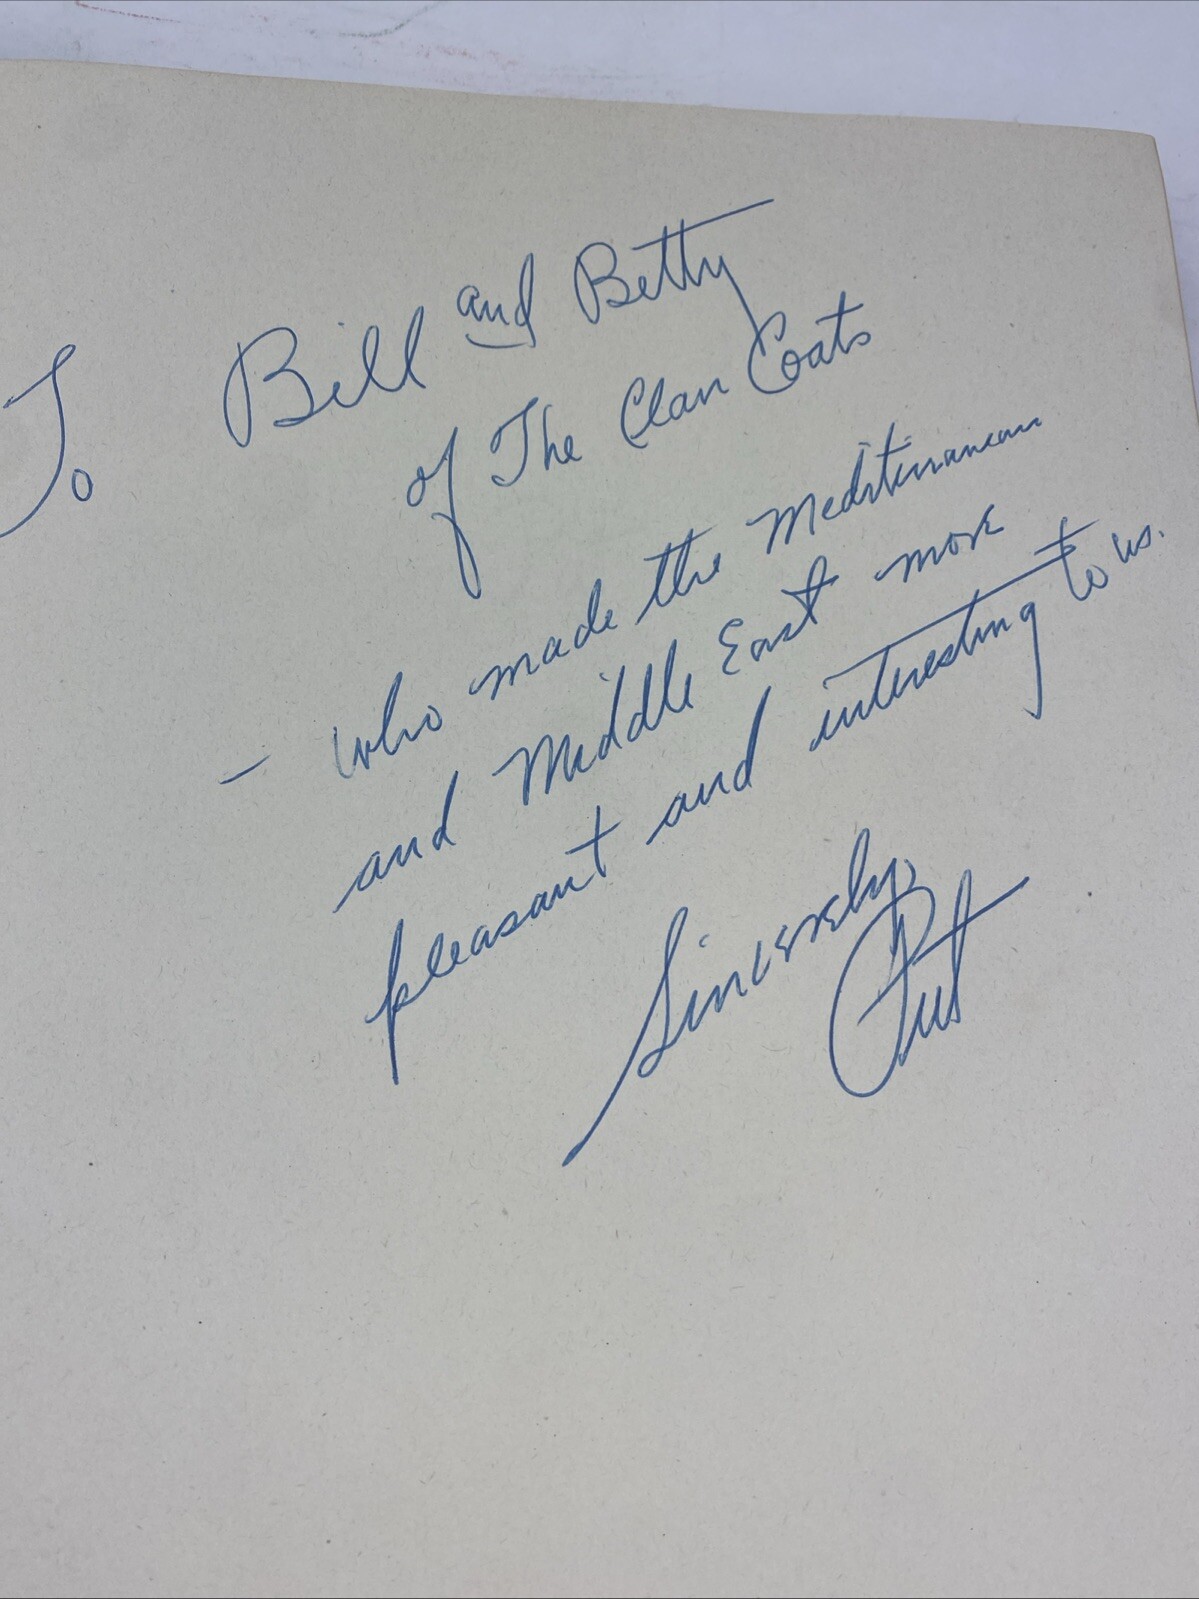 To Bill and Betty
of The Clan Coats
— who made the Mediterranean
and Middle East more
pleasant and interesting to us.
Sincerely,